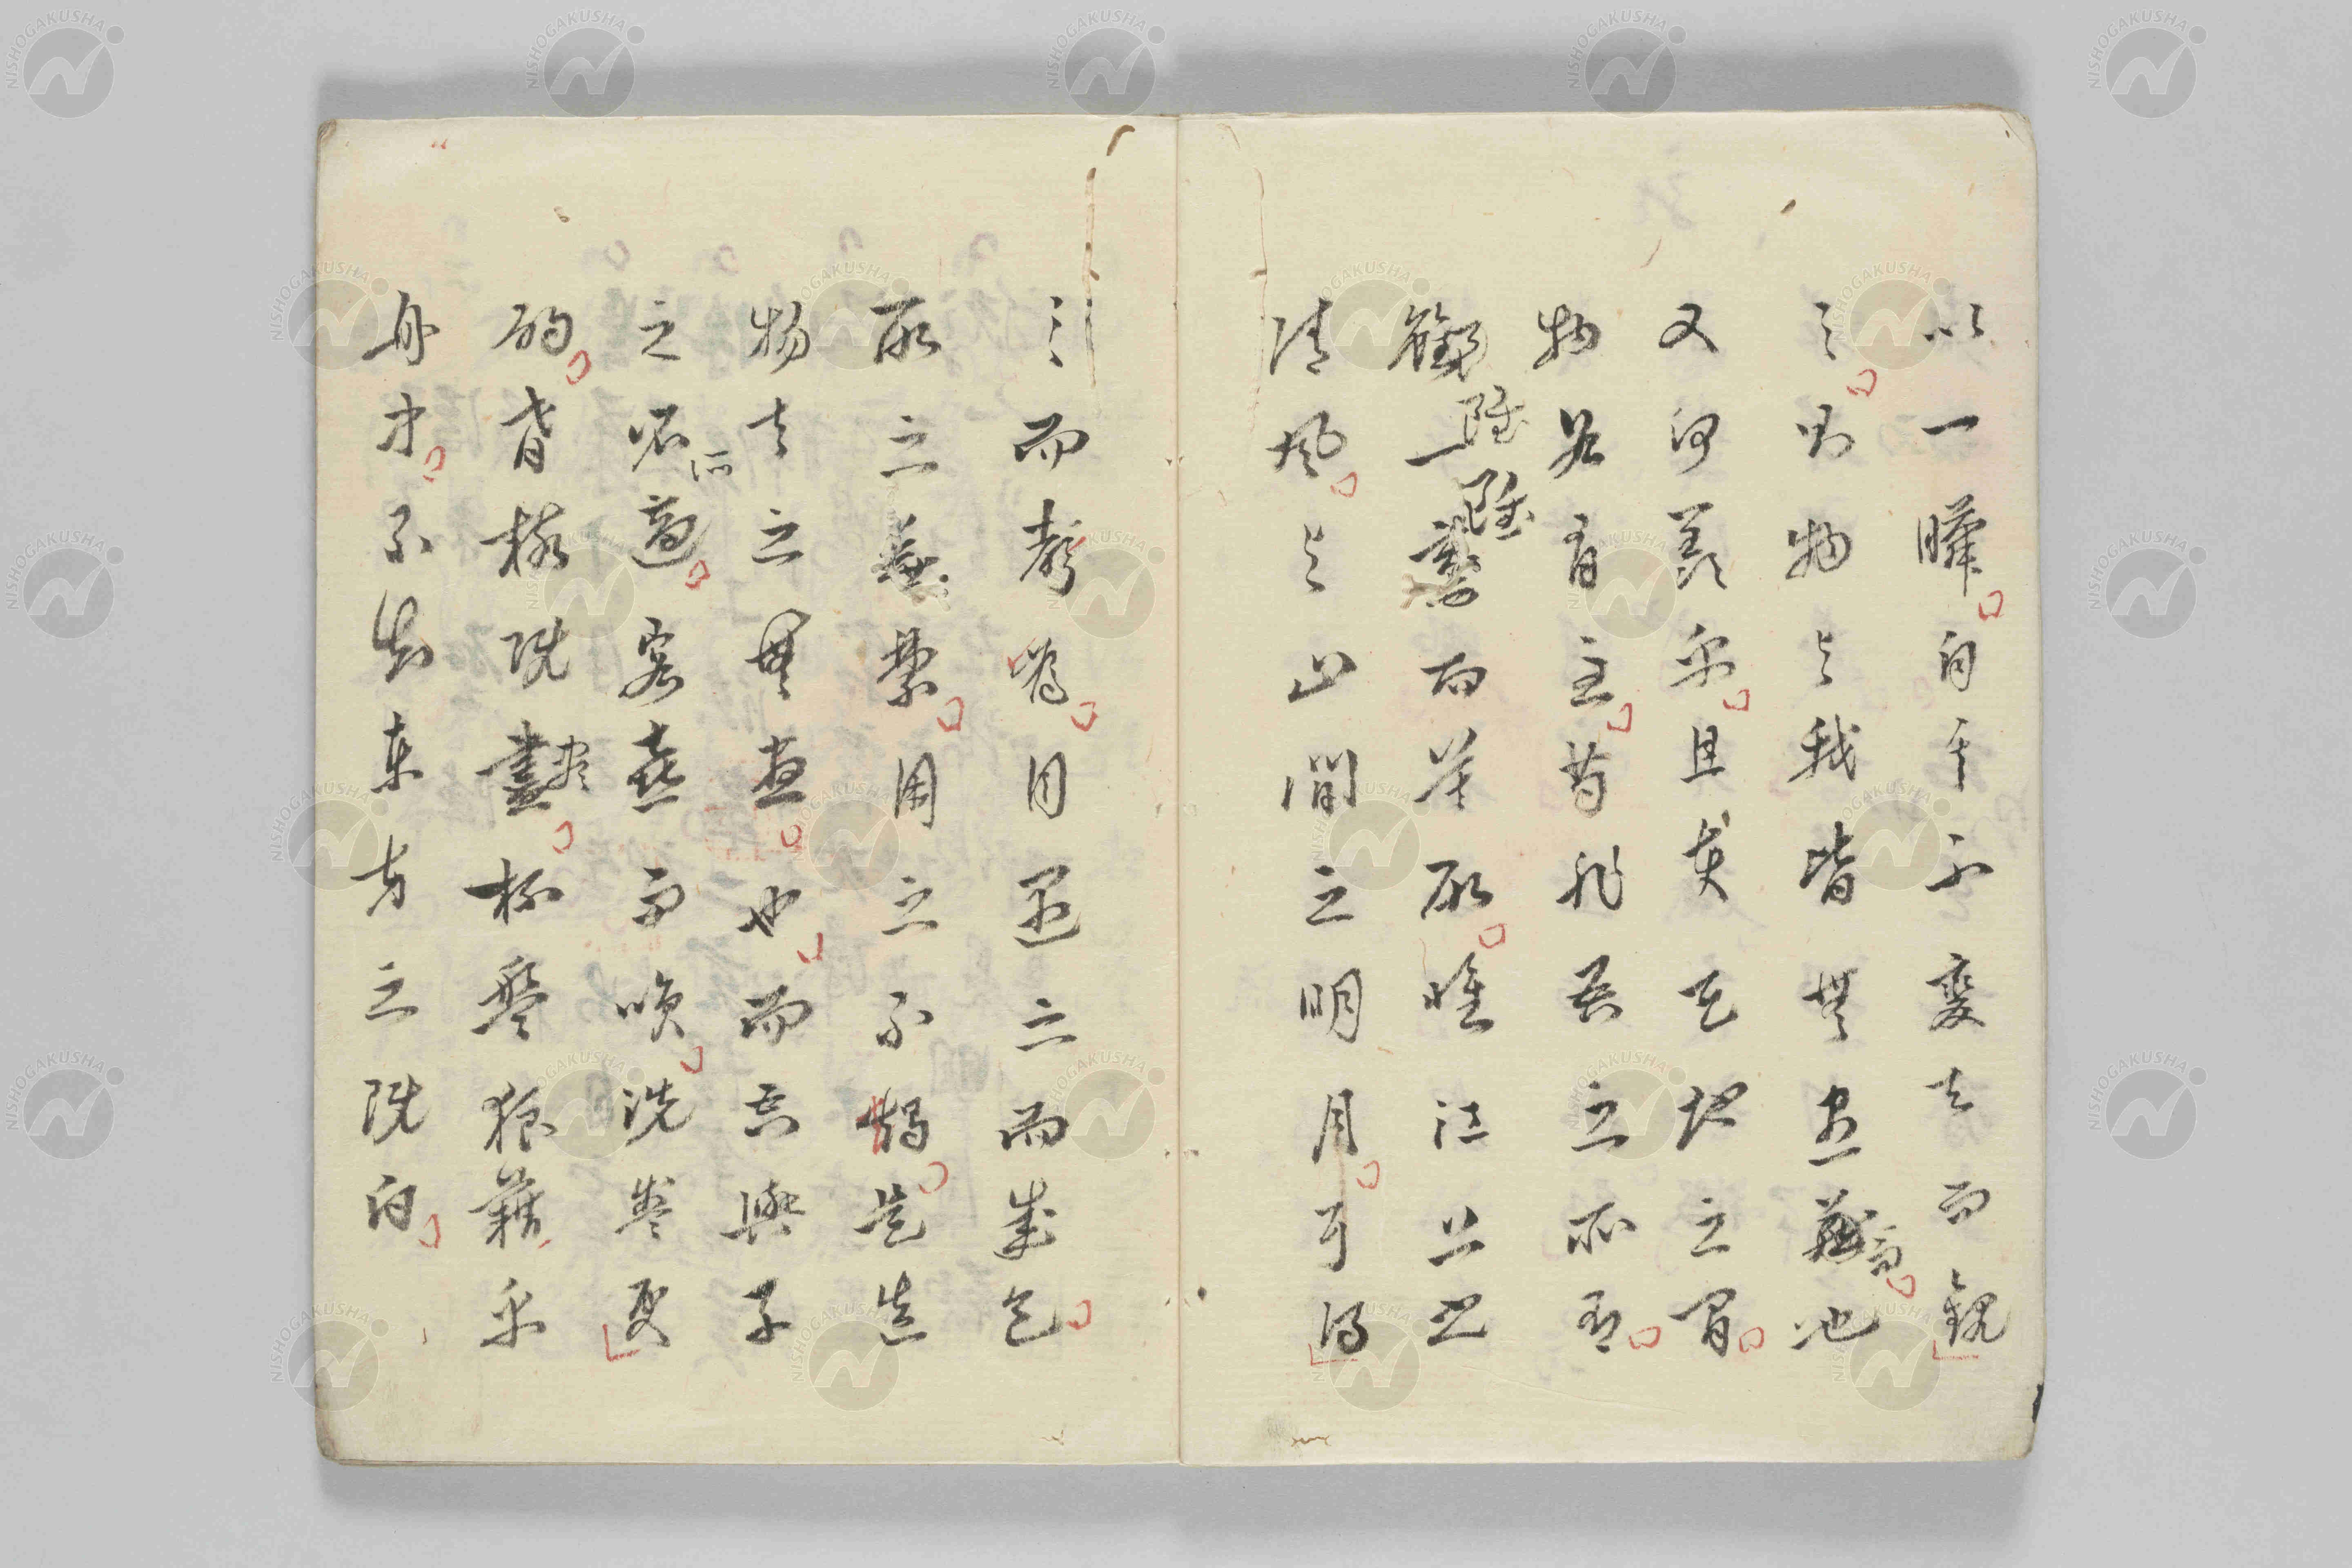 以一瞬自其不變者而觀
之則物与我皆無盡也
而
又何羨乎且夫天地之間
物各有主苟非吾之所有
雖一毫而莫取惟江上之
雖
雖
清風与山間之明月耳得
之而聲為目遇之而成色
取之無禁用之不竭是造
物者之無盡也而吾與子
之所適客喜而笑洗盞更
酌肴核既盡杯盤狼藉乎
尽
舟中不知東方之既白
NISHOGAKUSHA